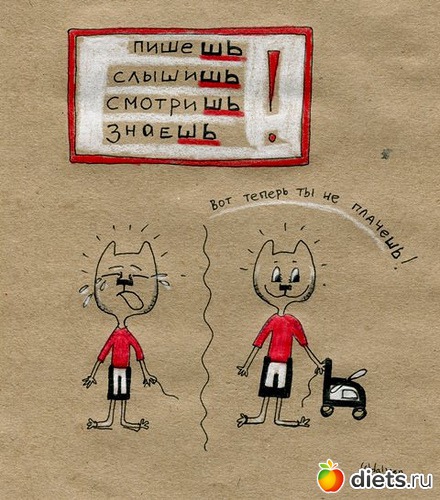 пишешь
слышишь
смотришь
знаешь
!
Вот теперь ты не плачешь!
diets.ru